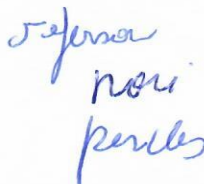 Jeferson
nori
perales